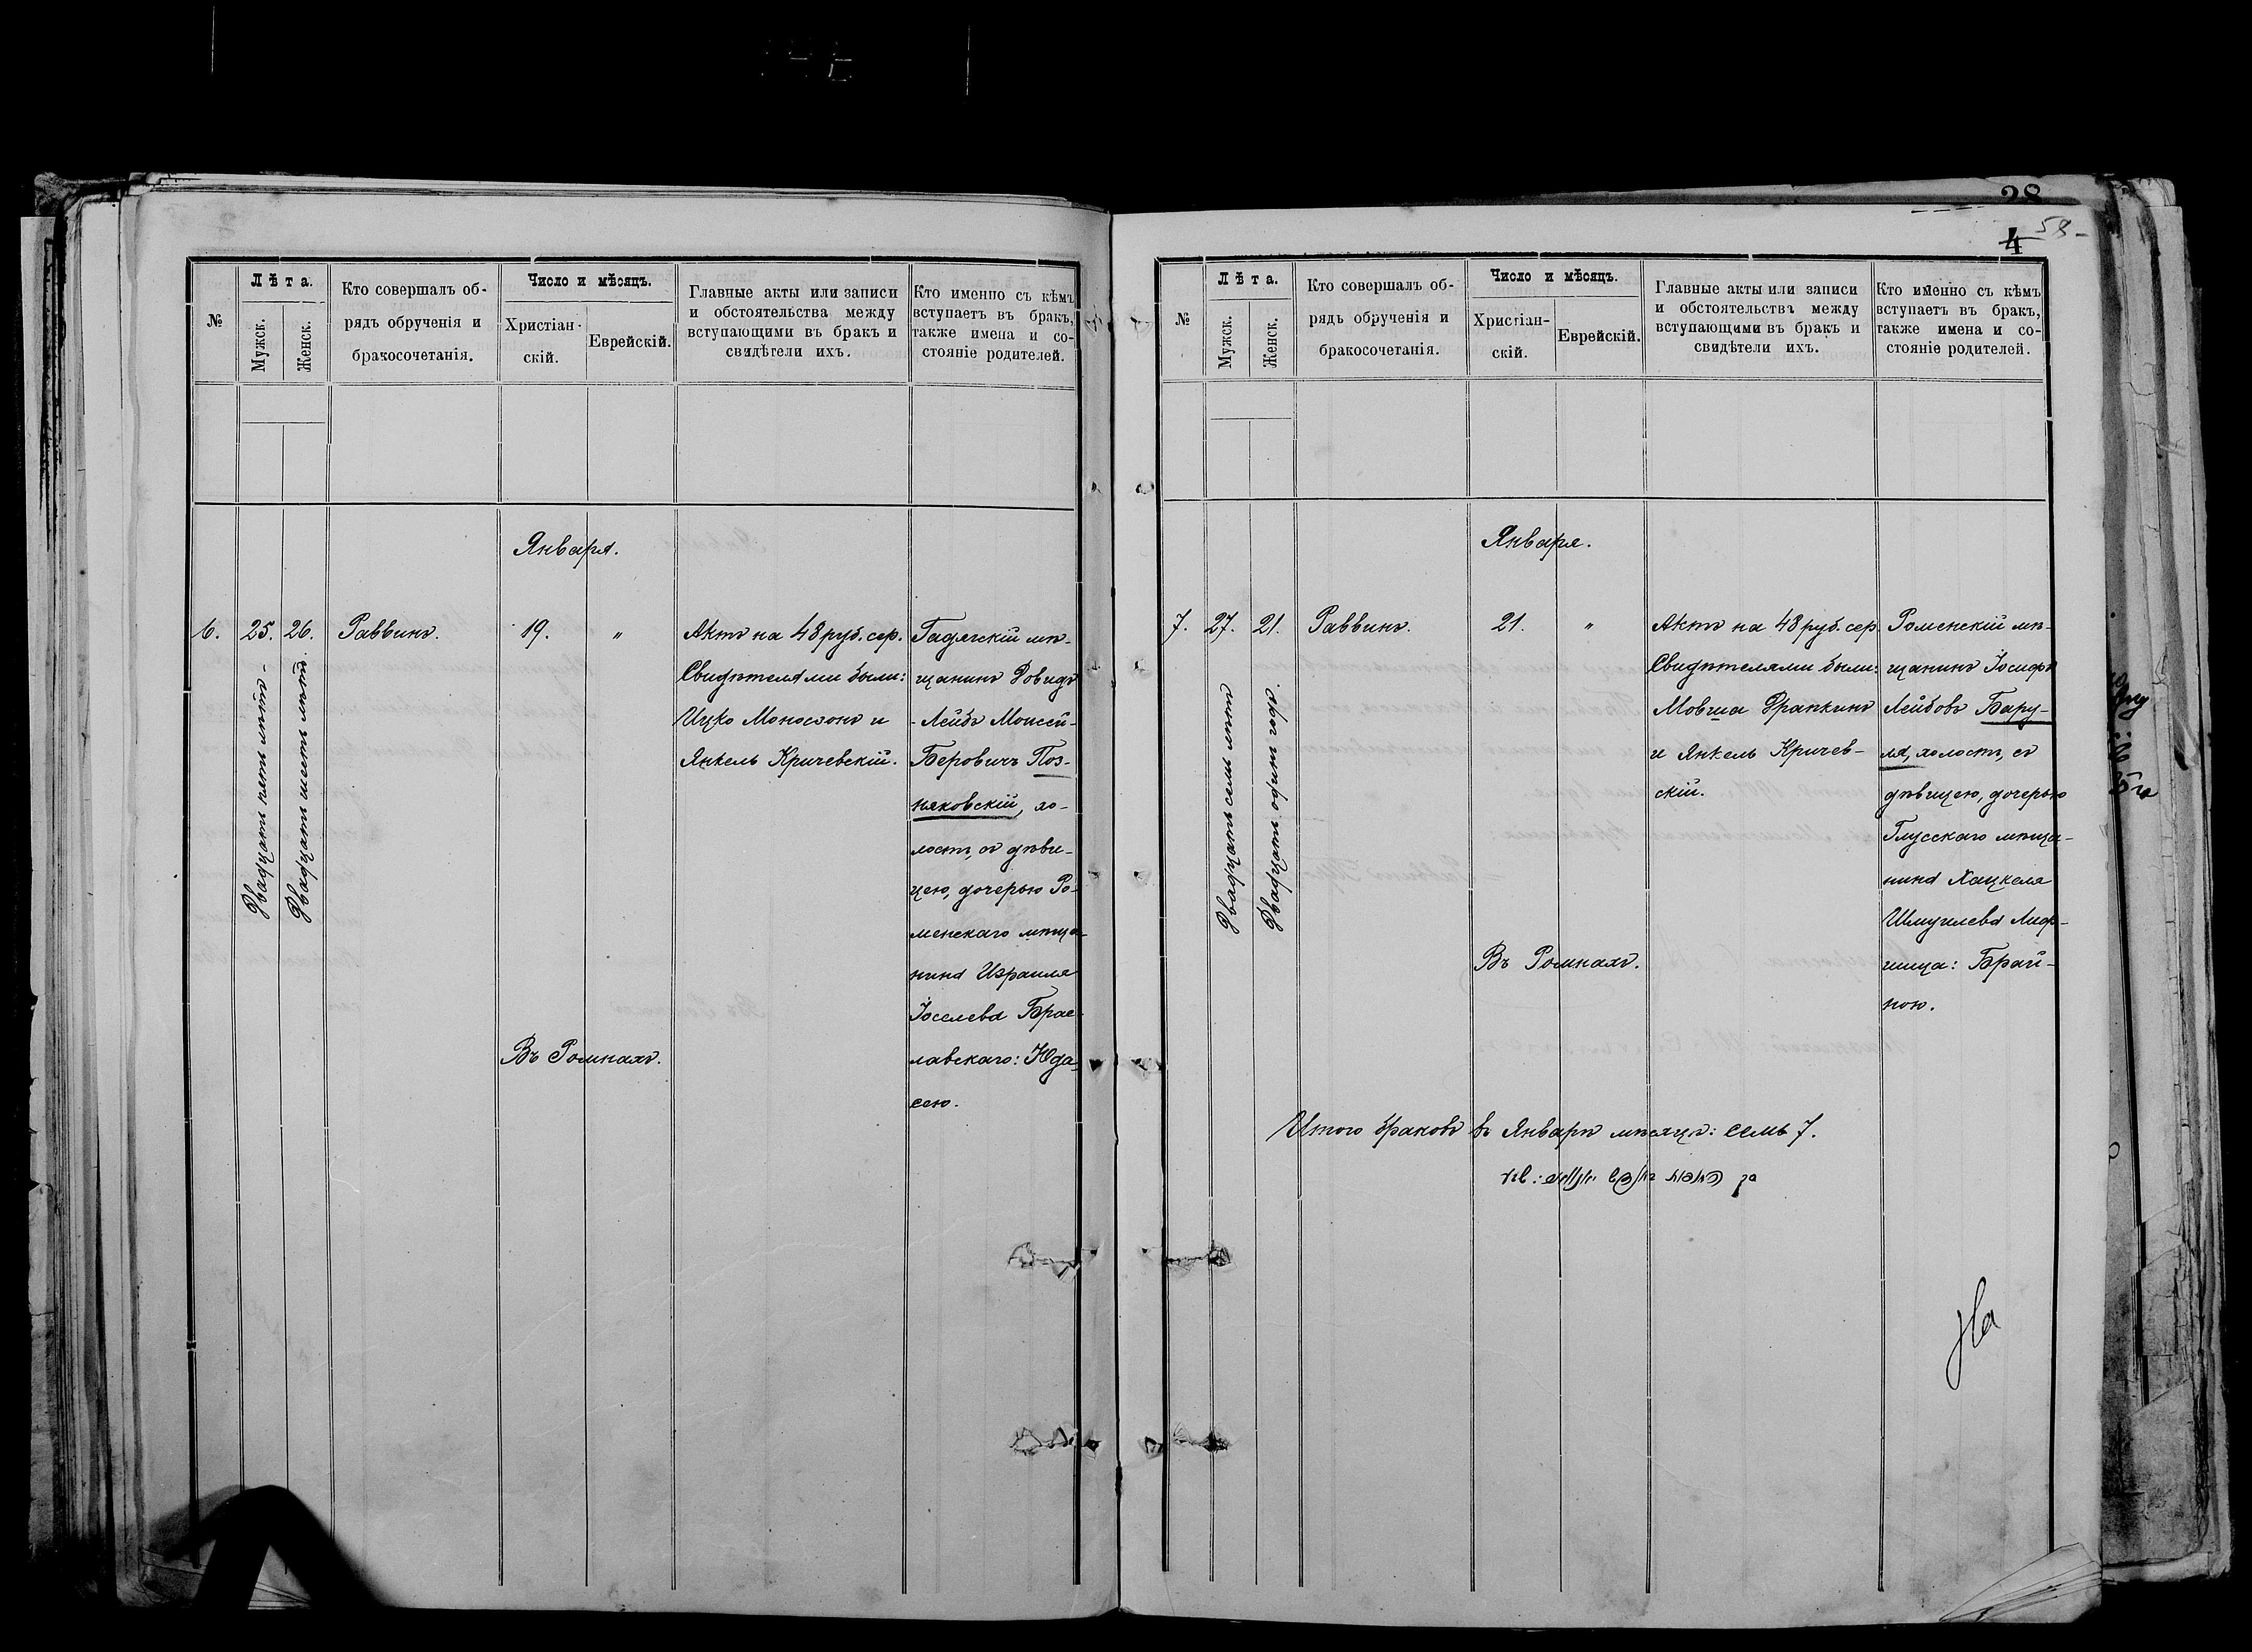 №
Лѣта.
Мужск.
Женск.
Кто совершалъ об-
рядъ обрученія и
бракосочетанія.
Число и мѣсяцъ.
Христіан-
скій.
Еврейскій.
Главные акты или записи
и обстоятельства между
вступающими въ бракъ и
свидѣтели ихъ.
Кто именно съ кѣмъ
вступаетъ въ бракъ,
также имена и со-
стояніе родителей.
Января.
6.
25.
Двадцать пять лѣтъ
26.
Двадцать шесть лѣтъ.
Раввинъ.
19.
"
Въ Ромнахъ.
Актъ на 48 руб. сер.
Свидѣтелями были:
Ицко Моносзонъ и
Янкель Кричевскій.
Гадячскій мѣ-
щанинъ Довидъ
-Лейбъ Моисей-
Беровичъ Поз-
няковскій, хо-
лостъ, съ дѣви-
цею, дочерью Ро-
менскаго мѣща-
нина Израиля
Іоселева Брас-
лавскаго: Юда-
сею.
28
4
58-
№
Лѣта.
Мужск.
Женск.
Кто совершалъ об-
рядъ обрученія и
бракосочетанія.
Число и мѣсяцъ.
Христіан-
скій.
Еврейскій.
Главные акты или записи
и обстоятельства между
вступающими въ бракъ и
свидѣтели ихъ.
Кто именно съ кѣмъ
вступаетъ въ бракъ,
также имена и со-
стояніе родителей.
Января.
7.
27.
Двадцать семь лѣтъ
21.
Двадцать одинъ годъ.
Раввинъ.
21.
"
Въ Ромнахъ.
Актъ на 48 руб. сер.
Свидѣтелями были:
Мовша Драпкинъ
и Янкель Кричев-
скій.
Роменскій мѣ-
щанинъ Іосифъ
Лейбовъ Бару-
ля, холостъ, съ
дѣвицею, дочерью
Глусскаго мѣща-
нина Хацкеля
Шмуилева Лиф-
шица: Брай-
ною.
Итого браковъ въ Январѣ мѣсяцѣ: семь 7.
На